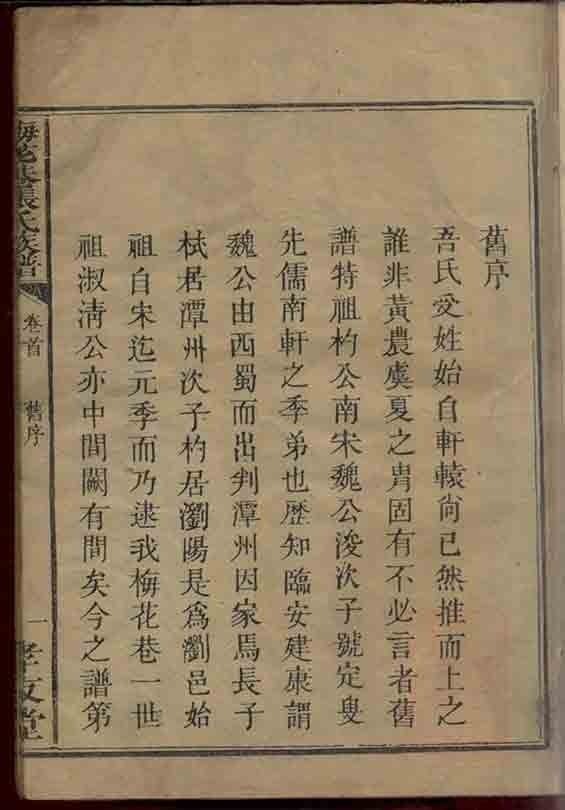 舊序
吾氏受姓始自軒轅尙已然推而上之
誰非黃農虞夏之胄固有不必言者舊
譜特祖杓公南宋魏公浚次子號定叟
先儒南軒之季弟也歷知臨安建康謂
魏公由西蜀而出判潭州因家焉長子
栻居潭州次子杓居瀏陽是爲瀏邑始
祖自宋迄元季而乃逮我梅花巷一世
祖淑淸公亦中間闕有間矣今之譜第
梅花巷張氏族譜
卷首
舊序
一
孝友堂